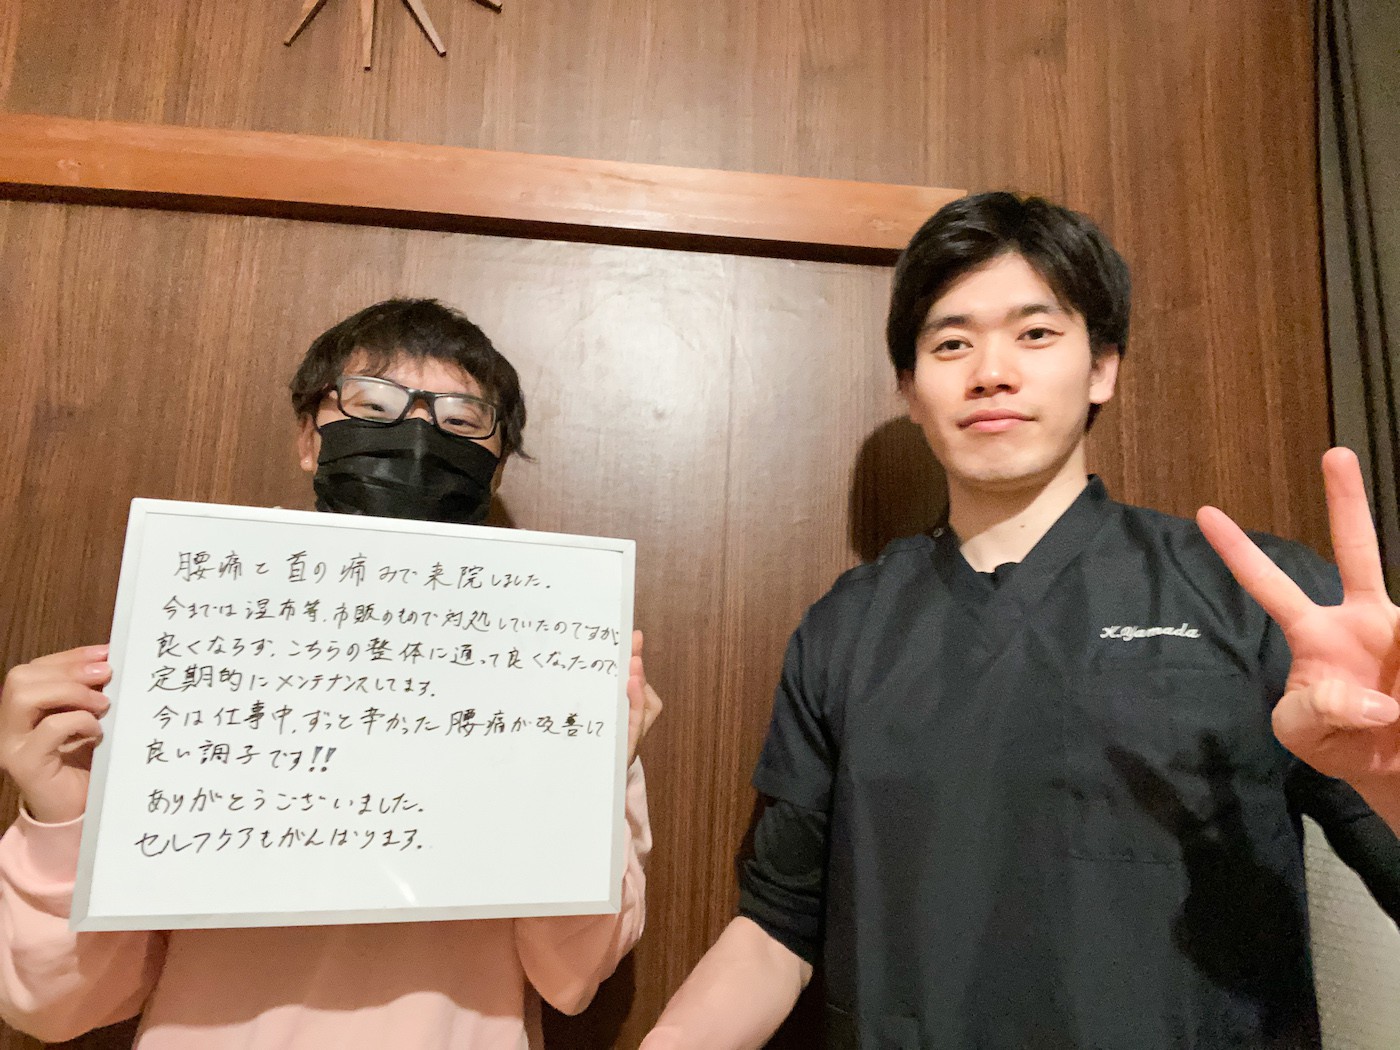 腰痛と首の痛みで来院しました.
今までは湿布等、市販のもので対処していたのですが、
良くならず、こちらの整体に通って良くなったので、
定期的にメンテナンスしてます.
今は仕事中、ずっと辛かった腰痛が改善して
良い調子です!!
ありがとうございました.
セルフケアもがんばります.
K.Yamada